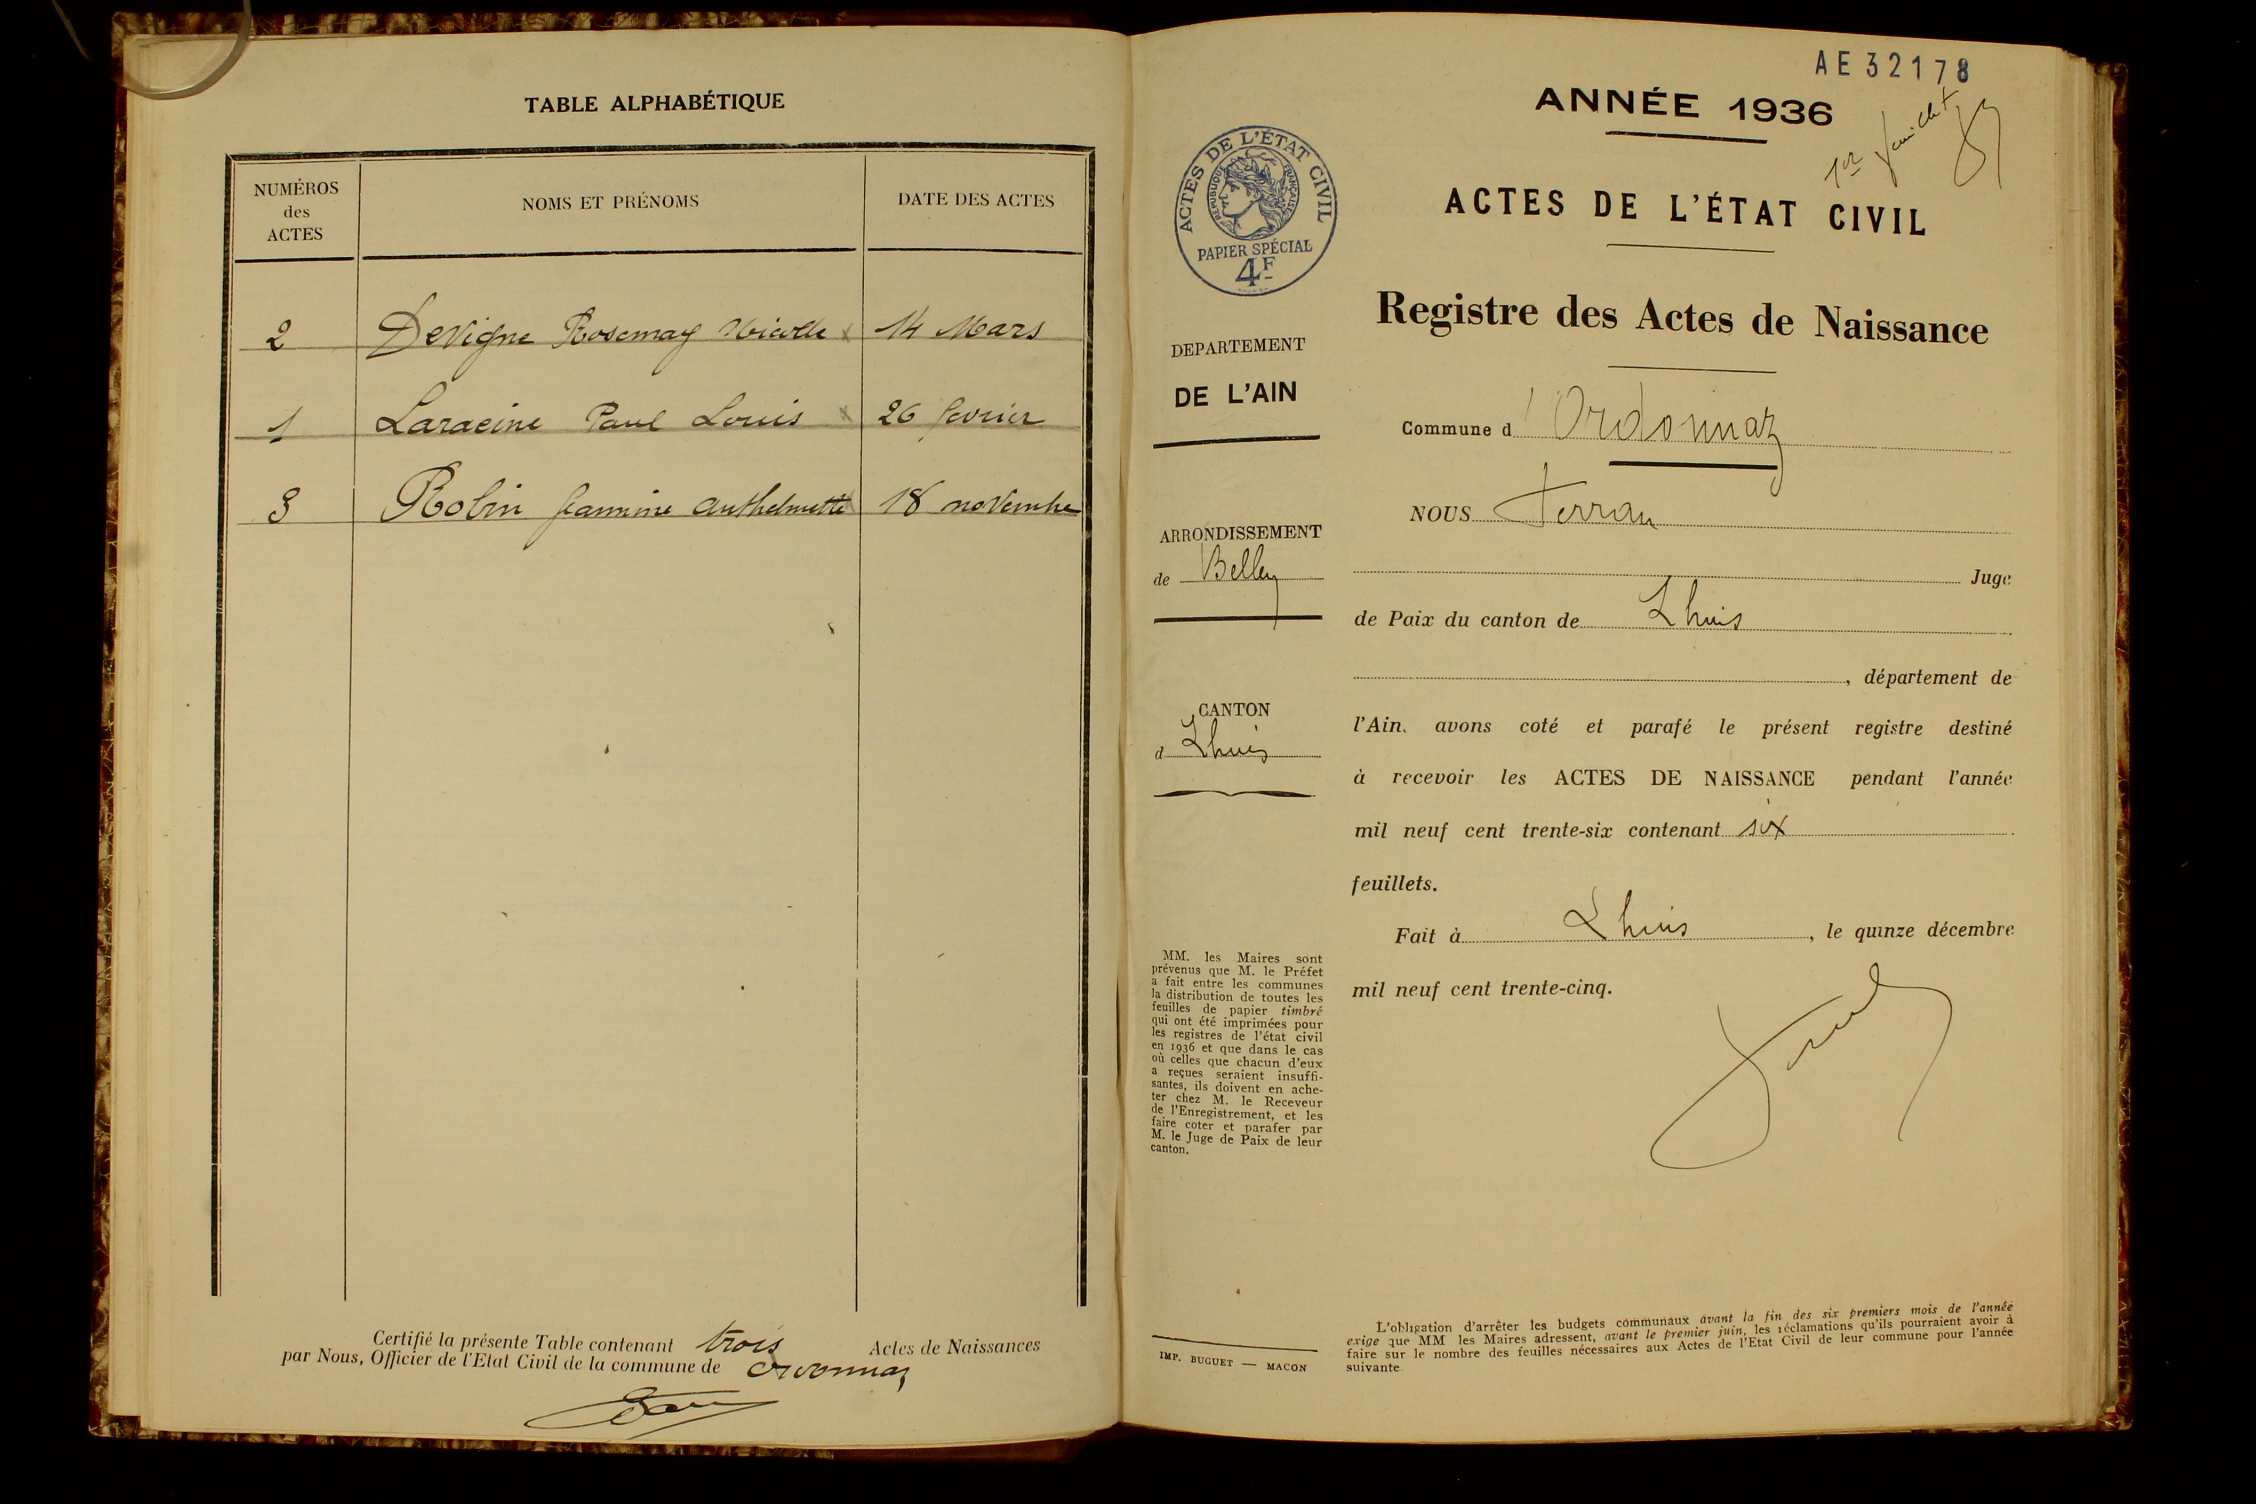 TABLE ALPHABÉTIQUE
NUMÉROS
des
ACTES
NOMS ET PRÉNOMS
DATE DES ACTES
2 Devigne Rosemay Nicolle 14 Mars
1 Laracine Paul Louis 26 fevrier
3 Robin Jeannine Anthelmette 18 novembre
Certifié la présente Table contenant trois Actes de Naissances
par Nous, Officier de l'Etat Civil de la commune de Ordonnaz
AE 32178
ANNÉE 1936
1er feuillet
ACTES DE L'ÉTAT CIVIL
RÉPUBLIQUE FRANÇAISE
PAPIER SPÉCIAL
4F
ACTES DE L'ÉTAT CIVIL
Registre des Actes de Naissance
DEPARTEMENT
DE L'AIN
ARRONDISSEMENT
de Belley
CANTON
d Lhuis
MM. les Maires sont
prévenus que M. le Préfet
a fait entre les communes
la distribution de toutes les
feuilles de papier timbré
qui ont été imprimées pour
les registres de l'état civil
en 1936 et que dans le cas
où celles que chacun d'eux
a reçues seraient insuffi-
santes, ils doivent en ache-
ter chez M. le Receveur
de l'Enregistrement, et les
faire coter et parafer par
M. le Juge de Paix de leur
canton.
IMP. BUGUET — MACON
Commune d'Ordonnaz
NOUS Ferran
Juge
de Paix du canton de Lhuis
, département de
l'Ain, avons coté et parafé le présent registre destiné
à recevoir les ACTES DE NAISSANCE pendant l'année
mil neuf cent trente-six contenant six
feuillets.
Fait à Lhuis, le quinze décembre
mil neuf cent trente-cinq.
L'obligation d'arrêter les budgets communaux avant la fin des six premiers mois de l'année
exige que MM les Maires adressent, avant le premier juin, les réclamations qu'ils pourraient avoir à
faire sur le nombre des feuilles nécessaires aux Actes de l'Etat Civil de leur commune pour l'année
suivante